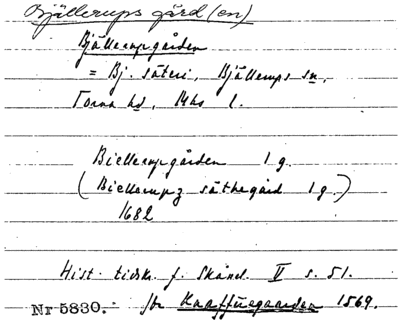 Bjällerups gård (en)
Bjällerupgården
= Bj. säteri, Bjällerups sn,
Torna hd, Mhs l.
Biellerupgården 1 g.
(Biellerupz säthegård 1 g.)
1682
Hist. tidskr. f. Skånel. V s. 51.
Nr 5830. Jfr Knaffuegaarden 1569.